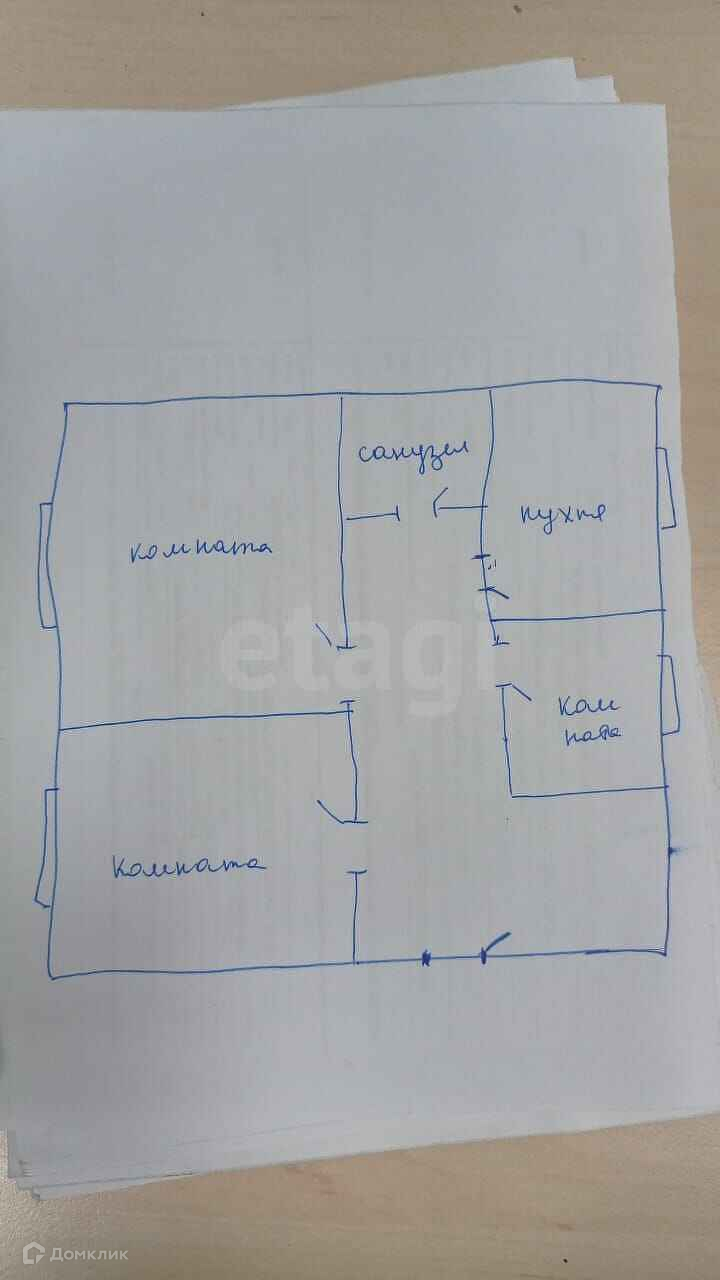 санузел
кухня
комната
etagi
ком
ната
комната
Домклик